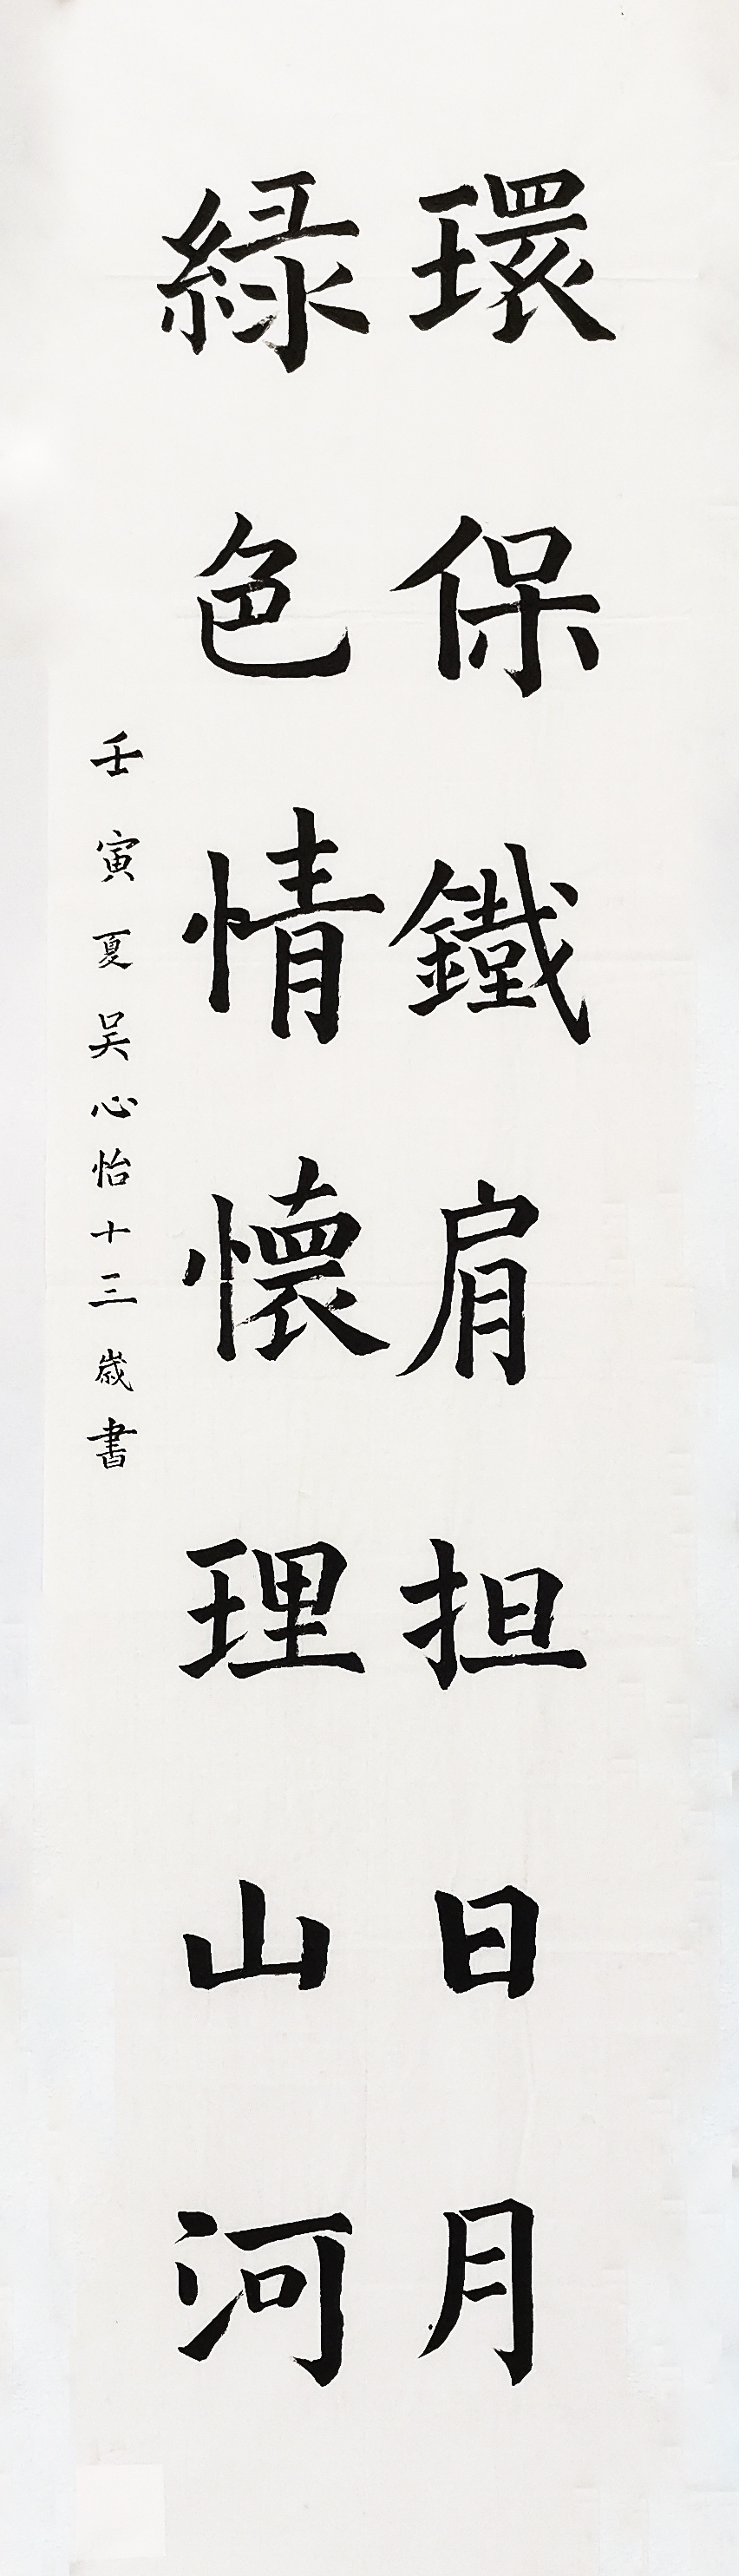 環保鐵肩担日月
緑色情懷理山河
壬寅夏吴心怡十三歲書